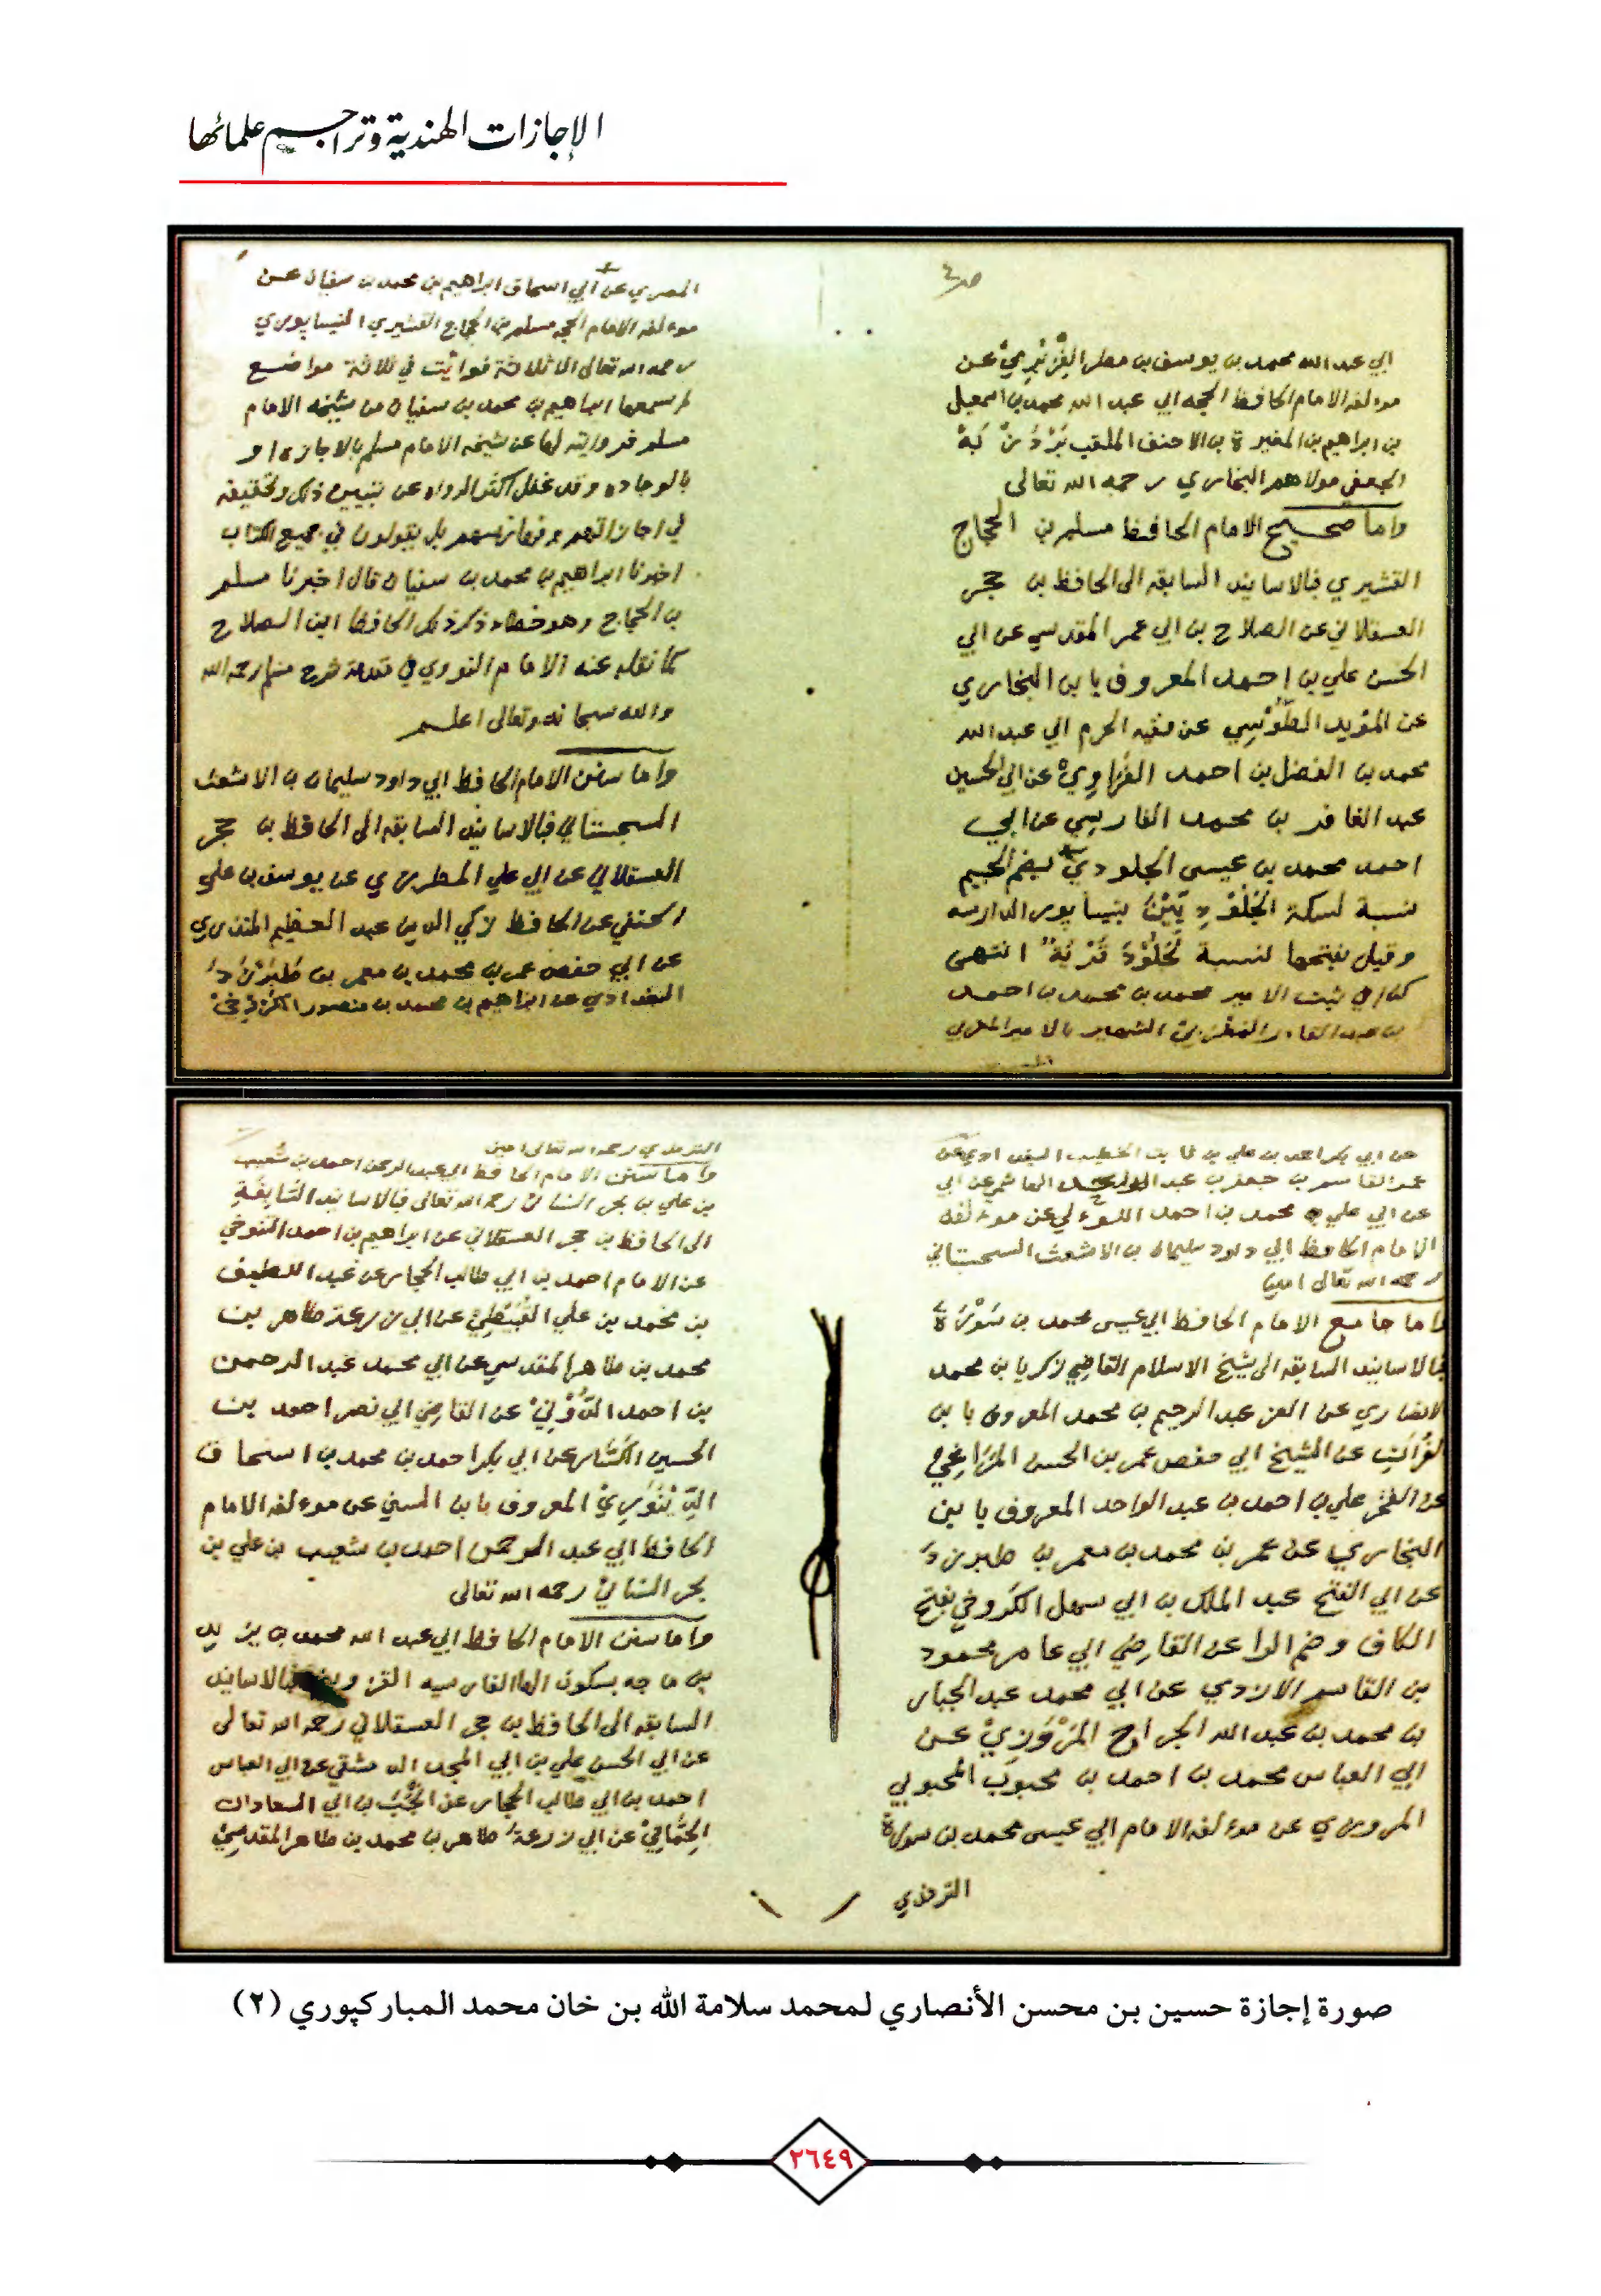 الإجازات الهندية وتراجم علمائها
ص٤
ابي عبد الله محمد بن يوسف بن مطر الفِرَبْرِيْ عن
موءلفه الامام الحافظ الحجه ابي عبد الله محمد بن اسمعيل
بن ابراهيم بن المغيرة بن الاحنف الملقب بَرْدُزْبَهْ
الجعفي مولاهم البخاري رحمه الله تعالى
واما صحيح الامام الحافظ مسلم بن الحجاج
القشيري فبالاسانيد السابقه الى الحافظ بن حجر
العسقلاني عن الصلاح بن ابي عمر المقدسي عن ابي
الحسن علي بن احمد المعروف بابن البخاري
عن المؤيد الطُوْسِي عن فقيه الحرم ابي عبد الله
محمد بن الفضل بن احمد الفَرَاوِيْ عن ابي الحسين
عبد الغافر بن محمد الفارسي عن ابي
احمد محمد بن عيسى الجلودي بضم الجيم
نسبة لسكة الجُلُوْدِيِّيْنَ بنيسابور الدارسه
وقيل بفتحها لنسبة لجَلُوْدَ قَرْيَةٌ انتهى
كذا في ثبت الامير محمد بن محمد بن احمد
بن عبد القادر الشهير بالامير المصري
المصري عن ابي اسحاق ابراهيم بن محمد بن سفيان عن
موءلفه الامام الحجه مسلم بن الحجاج القشيري النيسابوري
رحمه الله تعالى الا ثلاثة فوائت في ثلاثة مواضع
لم يسمعها ابراهيم بن محمد بن سفيان من شيخه الامام
مسلم فروايته لها عن شيخه الامام مسلم بالاجازه او
بالوجاده وقد غفل اكثر الرواه عن تبيين ذلك وتحقيقه
في اجازاتهم وفهارسهم بل يقولون في جميع الكتاب
اخبرنا ابراهيم بن محمد بن سفيان قال اخبرنا مسلم
بن الحجاج وهو خطاء ذكر ذلك الحافظ ابن الصلاح
كما نقله عنه الامام النووي في مقدمة شرح مسلم رحمه الله
والله سبحانه وتعالى اعلم
واما سنن الامام الحافظ ابي داود سليمان بن الاشعث
السجستاني فبالاسانيد السابقه الى الحافظ بن حجر
العسقلاني عن ابي علي المطرزي عن يوسف بن علي
الحنفي عن الحافظ زكي الدين عبد العظيم المنذري
عن ابي حفص عمر بن محمد بن معمر بن طَبَرْزَدَ
البغدادي عن ابراهيم بن محمد بن منصور الكَرْخِيْ
عن ابي بكر احمد بن علي بن ثابت الخطيب البغدادي عن
القاسم بن جعفر بن عبد الواحد الهاشمي عن ابي
عن ابي علي محمد بن احمد اللوءلؤي عن موءلفه
الامام الحافظ ابي داود سليمان بن الاشعث السجستاني
رحمه الله تعالى امين
واما جامع الامام الحافظ ابي عيسى محمد بن سَوْرَةَ
فبالاسانيد السابقه الى شيخ الاسلام القاضي زكريا بن محمد
الانصاري عن العز عبد الرحيم بن محمد المعروف بابن
الفُرَاتِ عن الشيخ ابي حفص عمر بن الحسن المَرَاغِيْ
عن الفخر علي بن احمد بن عبد الواحد المعروف بابن
البخاري عن عمر بن محمد بن معمر بن طبرزدَ
عن ابي الفتح عبد الملك بن ابي سهل الكَرُوخي بفتح
الكاف وضم الرا عن القاضي ابي عامر محمود
بن القاسم الازدي عن ابي محمد عبد الجبار
بن محمد بن عبد الله الجراح المَرْوَزِيْ عن
ابي العباس محمد بن احمد بن محبوب المحبوبي
المروزي عن موءلفه الامام ابي عيسى محمد بن سورة
الترمذي
الترمذي رحمه الله تعالى امين
واما سنن الامام الحافظ ابي عبد الرحمن احمد بن شعيب
بن علي بن بحر النسائي رحمه الله تعالى فبالاسانيد السَّابِقَةِ
الى الحافظ بن حجر العسقلاني عن ابراهيم بن احمد التنوخي
عن الامام احمد بن ابي طالب الحجار عن عبد اللطيف
بن محمد بن علي القُبَيْطِيْ عن ابي زرعة طاهر بن
محمد بن طاهر المقدسي عن ابي محمد عبد الرحمن
بن احمد الدُّوْنِيْ عن القاضي ابي نصر احمد بن
الحسين الكَسَّار عن ابي بكر احمد بن محمد بن اسحاق
الدِّيْنَوَرِيْ المعروف بابن السني عن موءلفه الامام
الحافظ ابي عبد الرحمن احمد بن شعيب بن علي بن
بحر النسائيْ رحمه الله تعالى
واما سنن الامام الحافظ ابي عبد الله محمد بن يزيد
بن ماجه بسكون الها الفارسيه القزويني فبالاسانيد
السابقه الى الحافظ بن حجر العسقلاني رحمه الله تعالى
عن ابي الحسن علي بن ابي المجد الدمشقي عن ابي العباس
احمد بن ابي طالب الحجار عن انجب بن ابي السعادات
الحَمَّامِيْ عن ابي زرعة طاهر بن محمد بن طاهر المقدسِيْ
صورة إجازة حسين بن محسن الأنصاري لمحمد سلامة الله بن خان محمد المباركپوري (٢)
٢٦٤٩